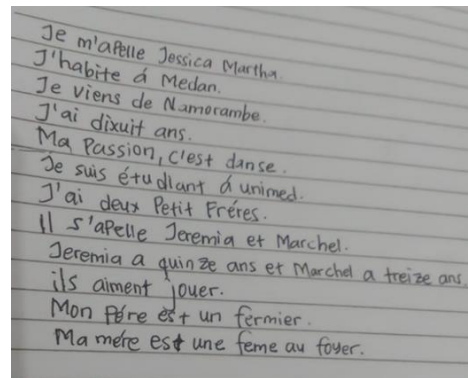 Je m'apelle Jessica Martha.
J'habite á Medan.
Je viens de Namorambe.
J'ai dixuit ans.
Ma Passion, c'est danse.
Je suis étudiant á unimed.
J'ai deux Petit Fréres.
Il s'apelle Jeremia et Marchel.
Jeremia a quinze ans et Marchel a treize ans.
ils aiment jouer.
Mon Pére est un fermier.
Ma mére est une feme au foyer.